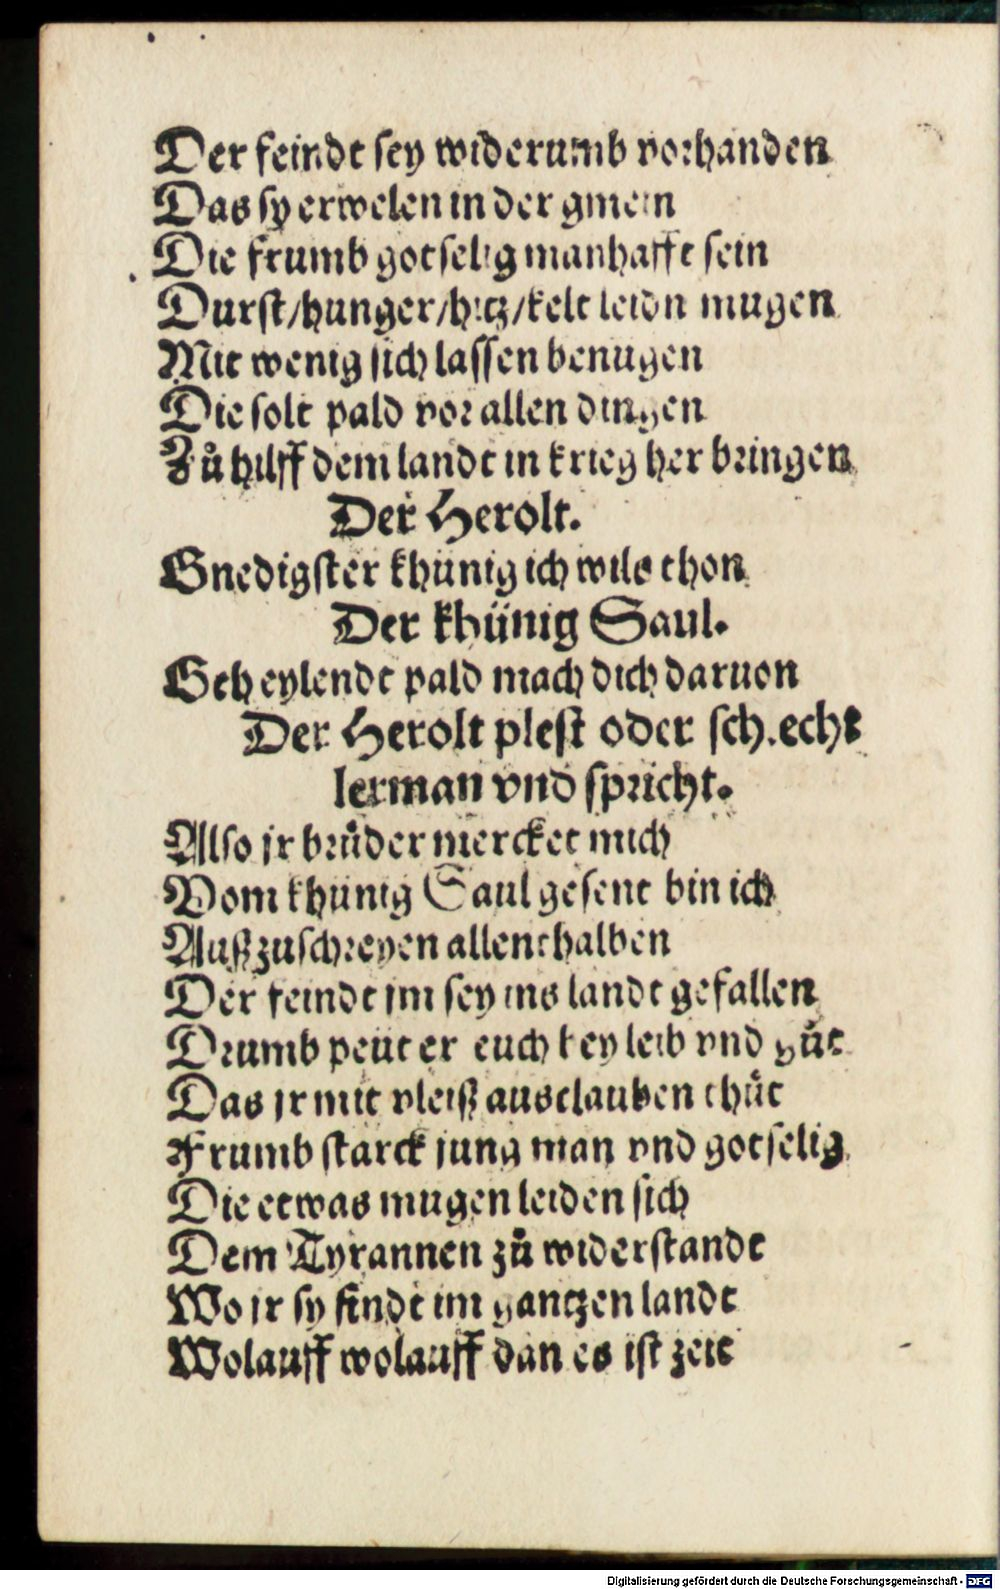 Der feindt sey widerumb vorhanden
Das sy erwelen in der gmein
Die frumb gotselig manhafft sein
Durst/hunger/hitz/kelt leidn mugen
Mit wenig sich lassen benugen
Die solt pald vor allen dingen
Zů hilff dem landt in krieg her bringen
Der Herolt.
Gnedigster khünig ich wils thon
Der khünig Saul.
Geh eylendt pald mach dich daruon
Der Herolt plest oder schlecht
lerman vnd spricht.
Also jr brůder mercket mich
Vom khünig Saul gesent bin ich
Außzuschreyen allenthalben
Der feindt jm sey ins landt gefallen
Drumb peut er euch bey leib vnd gůt
Das jr mit vleiß ausclauben thůt
Frumb starck jung man vnd gotselig
Die etwas mugen leiden sich
Dem Tyrannen zů widerstandt
Wo jr sy findt im gantzen landt
Wolauff wolauff dan es ist zeit
Digitalisierung gefördert durch die Deutsche Forschungsgemeinschaft - DFG